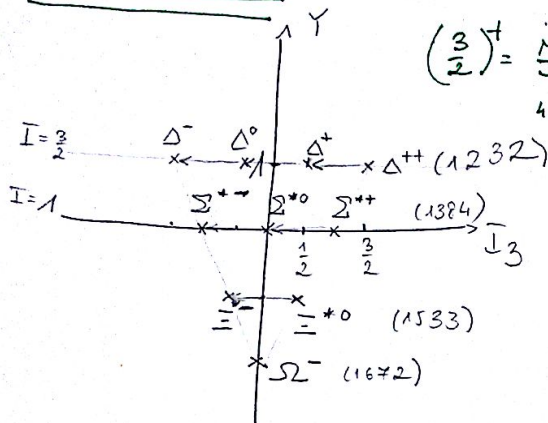 Y
(3/2)⁺ =
I = 3/2 Δ⁻ Δ⁰ 1 Δ⁺ Δ⁺⁺ (1232)
I = 1 Σ*⁻ Σ*⁰ Σ*⁺ (1384)
1/2 3/2 I₃
Ξ*⁻ Ξ*⁰ (1533)
Ω⁻ (1672)